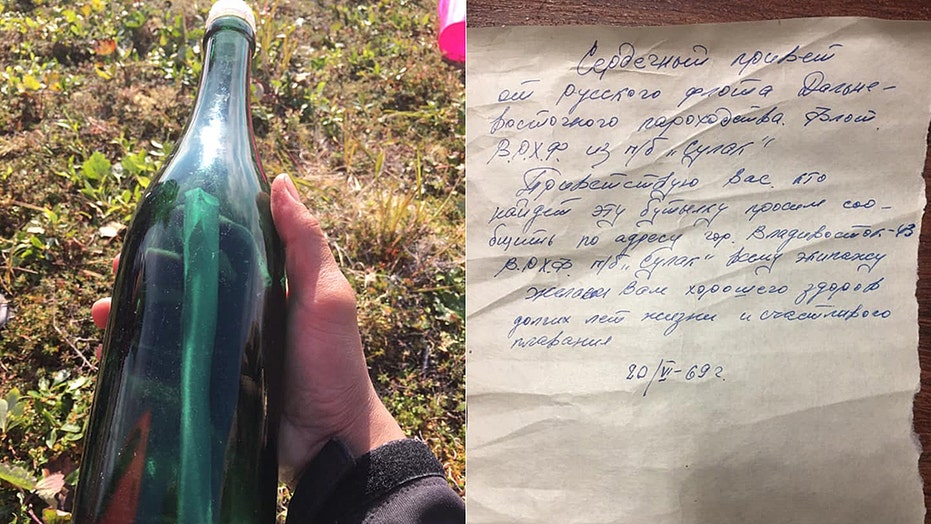 Сердечный привет
от русского флота Дальне-
восточного пароходства. Флот.
В.Р.Х.Ф. из п/б „Сулак“
Приветствую Вас кто
найдет эту бутылку просим соо-
бщить по адресу гор. Владивосток-43
В.Р.Х.Ф. п/б „Сулак“ всему экипажу
желаем Вам хорошего здоров
долгих лет жизни и счастливого
плавания
20/VI-69г.